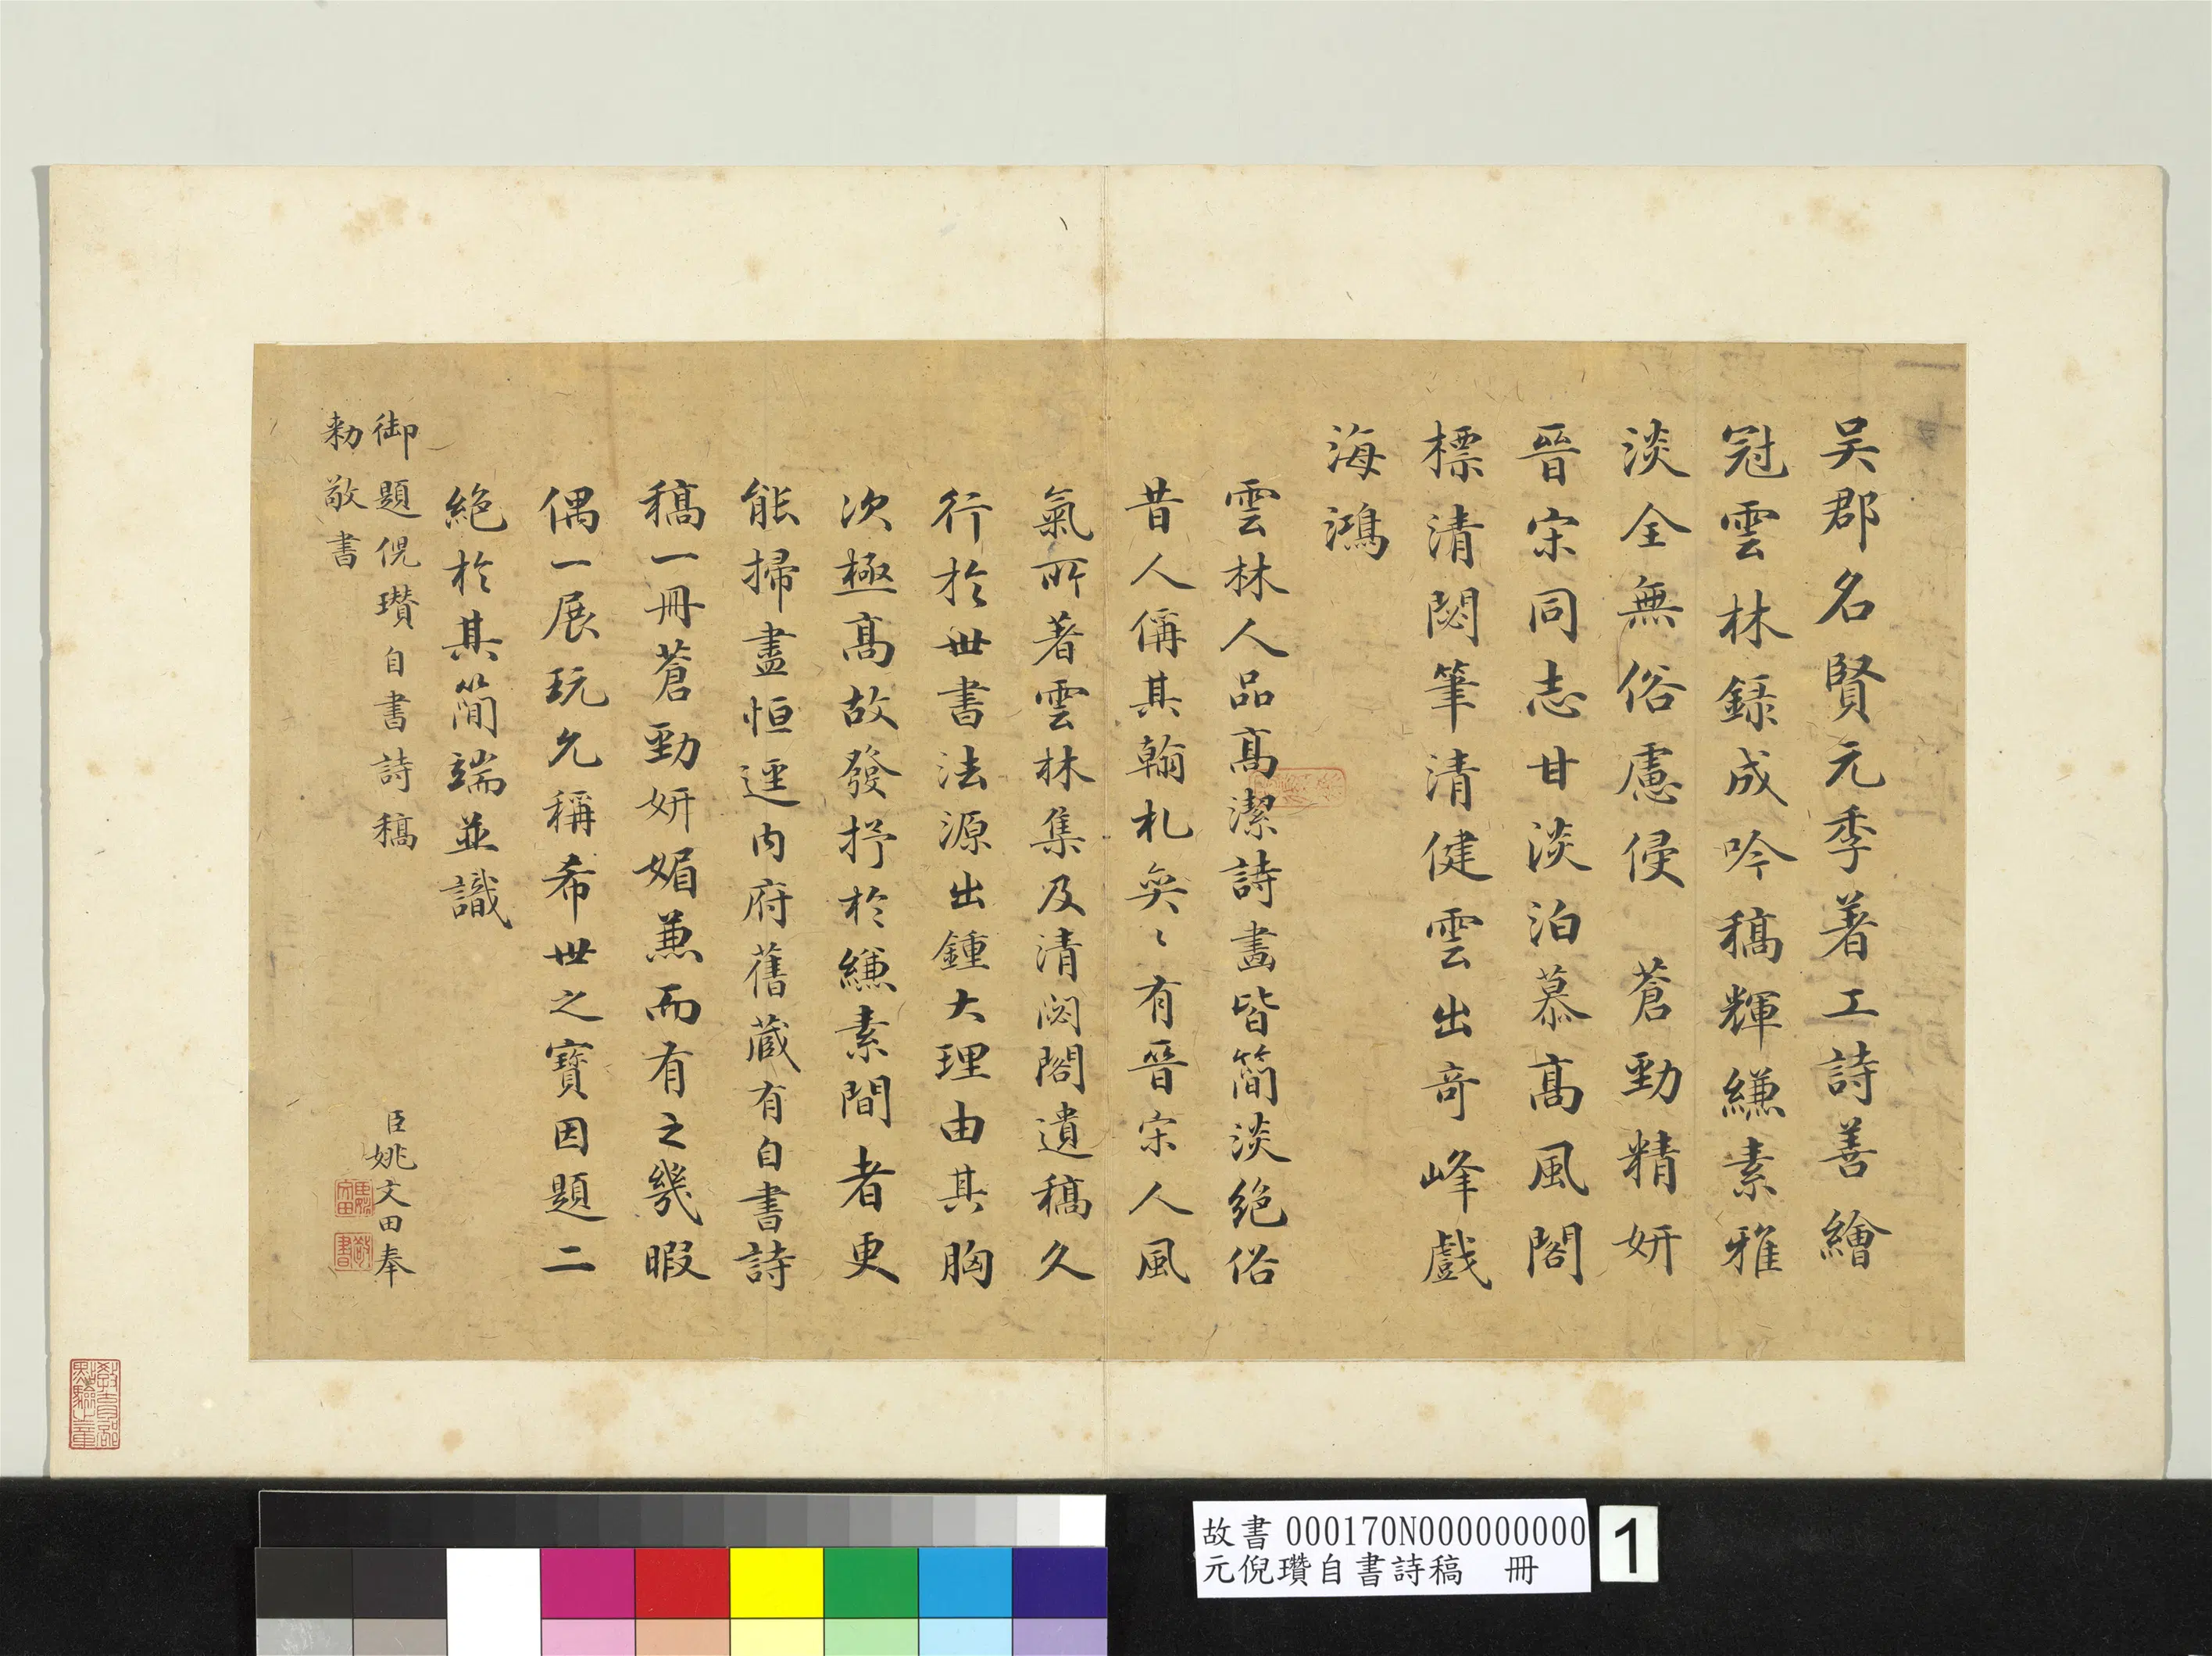 吳郡名賢元季著工詩善繪
冠雲林錄成吟稿輝縑素雅
淡全無俗慮侵　蒼勁精妍
晉宋同志甘淡泊慕高風閣
標清閟筆清健雲出奇峰戲
海鴻
雲林人品高潔詩畫皆簡淡絕俗
昔人偁其翰札奕〻有晉宋人風
氣所著雲林集及清閟閣遺稿久
行於世書法源出鍾大理由其胸
次極高故發抒於縑素間者更
能掃盡恒逕內府舊藏有自書詩
稿一冊蒼勁妍媚兼而有之幾暇
偶一展玩允稱希世之寶因題二
絕於其簡端並識
御題倪瓚自書詩稿
臣姚文田奉
勅敬書
臣姚文田
敬書
教育部點驗之章
故書 000170N000000000
元倪瓚自書詩稿　冊
1